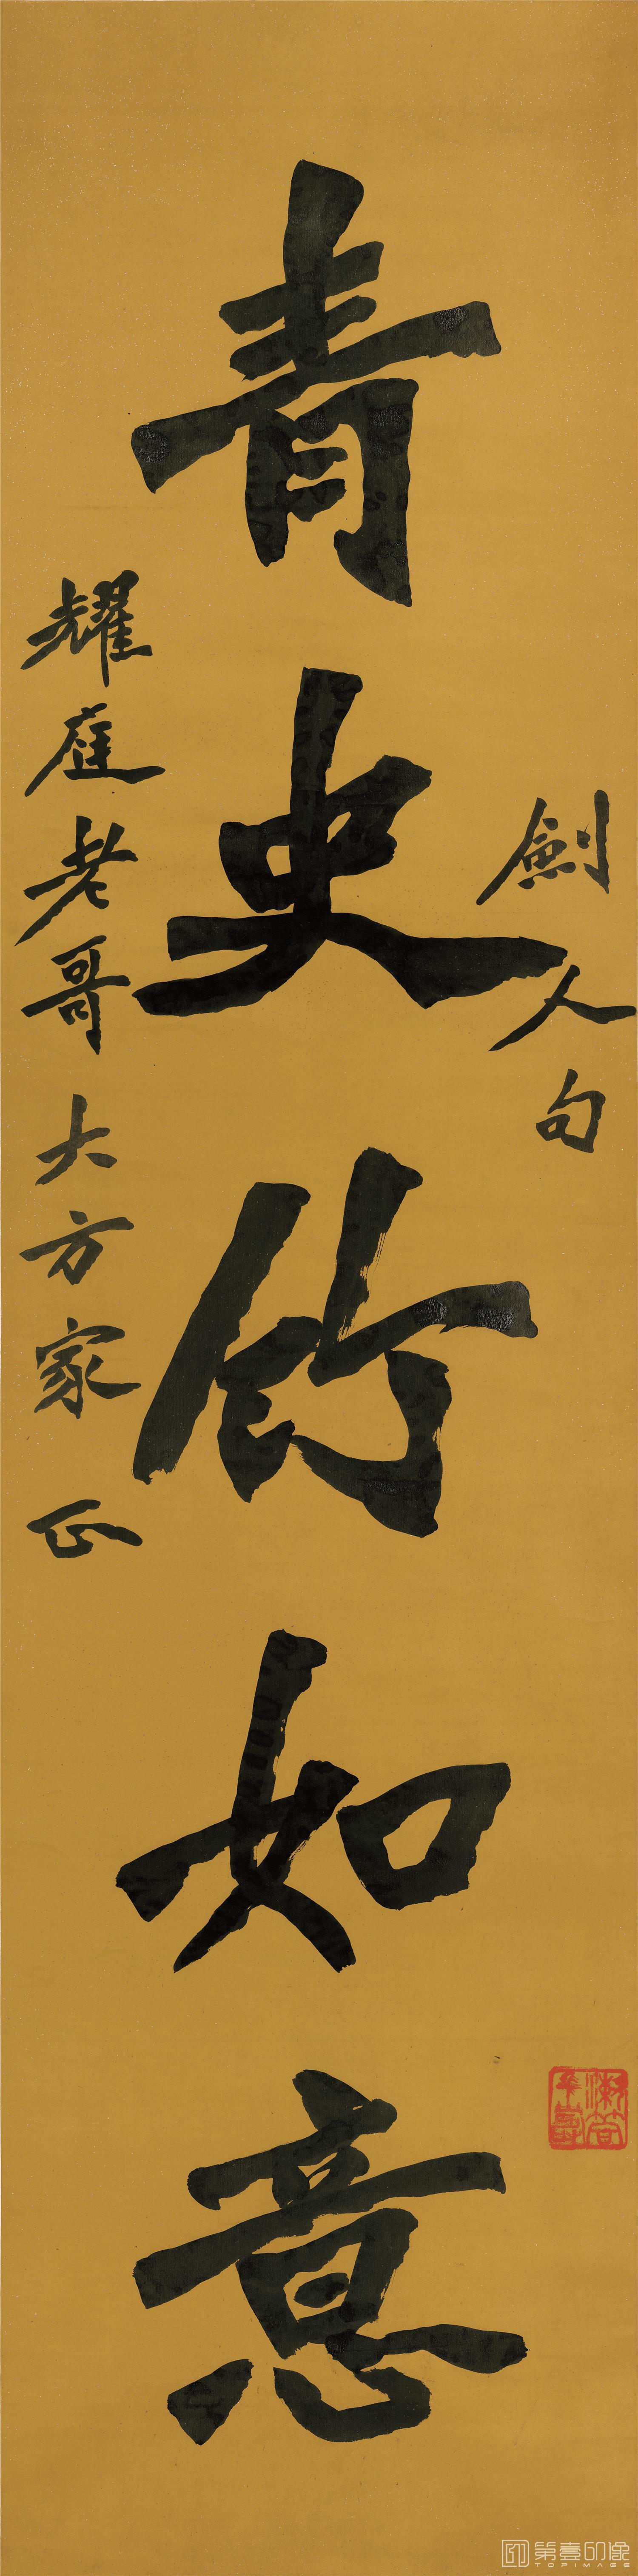 劍人句
青史竹如意
耀庭老哥大方家正
第壹印像
TOPIMAGE